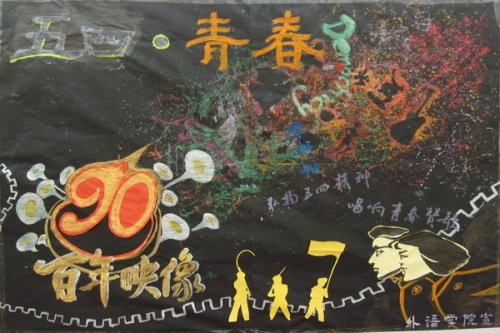 五四·青春
90
百年映像
弘扬五四精神
唱响青春
外语学院宣